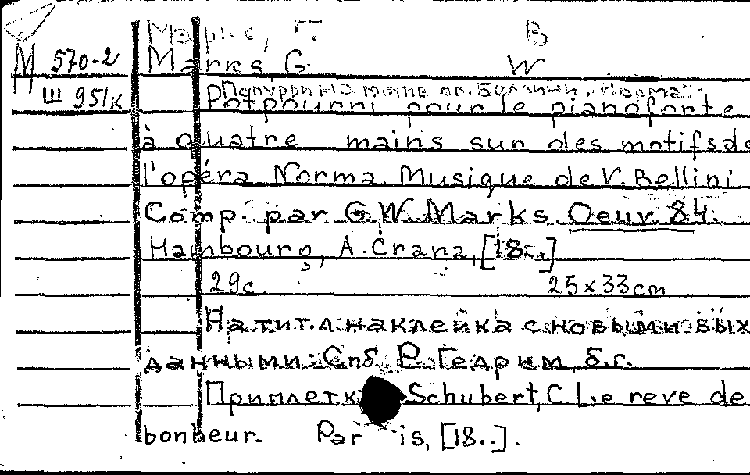 Маркс, Г. В
М 570-2 Marks G W
Ш 951к Попурри на темы оп. Беллини "Норма".
Potpourri pour le pianoforte
à quatre mains sur des motifs de
l'opéra Norma. Musique de V. Bellini
Comp. par G. W. Marks. Oeuv. 84.
Hambourg, A. Cranz, [18..]
29с. 25x33cm
На тит. л. наклейка с новыми вых
данными: Спб. Р. Гедрим, б.г.
Приплетк Schubert, C. Le reve de
bonheur. Paris, [18..].